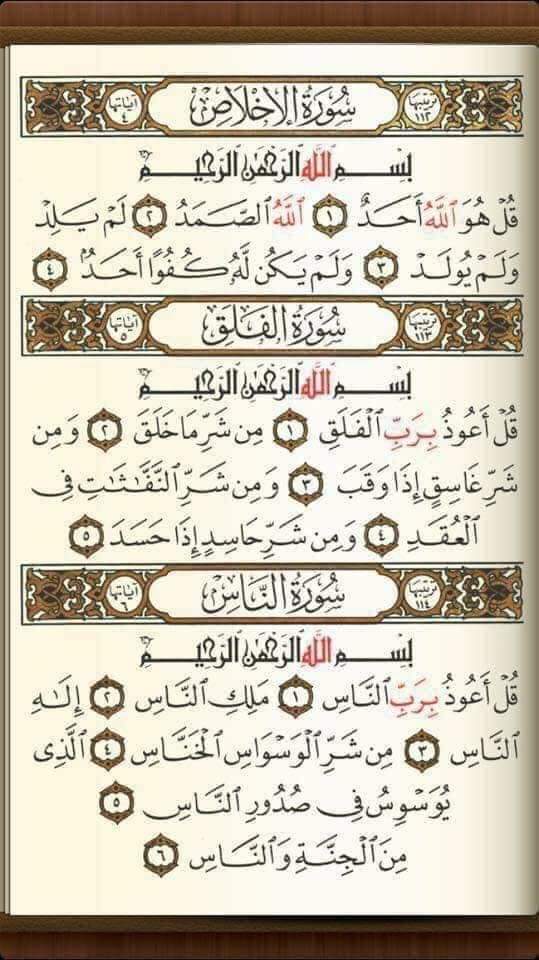 ترتيبها ١١٢ سُورَةُ الإِخْلَاصِ آياتها ٤
بِسْمِ اللَّهِ الرَّحْمَٰنِ الرَّحِيمِ
قُلْ هُوَ ٱللَّهُ أَحَدٌ ١ ٱللَّهُ ٱلصَّمَدُ ٢ لَمْ يَلِدْ
وَلَمْ يُولَدْ ٣ وَلَمْ يَكُن لَّهُۥ كُفُوًا أَحَدٌۢ ٤
ترتيبها ١١٣ سُورَةُ الفَلَقِ آياتها ٥
بِسْمِ اللَّهِ الرَّحْمَٰنِ الرَّحِيمِ
قُلْ أَعُوذُ بِرَبِّ ٱلْفَلَقِ ١ مِن شَرِّ مَا خَلَقَ ٢ وَمِن
شَرِّ غَاسِقٍ إِذَا وَقَبَ ٣ وَمِن شَرِّ ٱلنَّفَّـٰثَـٰتِ فِى
ٱلْعُقَدِ ٤ وَمِن شَرِّ حَاسِدٍ إِذَا حَسَدَ ٥
ترتيبها ١١٤ سُورَةُ النَّاسِ آياتها ٦
بِسْمِ اللَّهِ الرَّحْمَٰنِ الرَّحِيمِ
قُلْ أَعُوذُ بِرَبِّ ٱلنَّاسِ ١ مَلِكِ ٱلنَّاسِ ٢ إِلَـٰهِ
ٱلنَّاسِ ٣ مِن شَرِّ ٱلْوَسْوَاسِ ٱلْخَنَّاسِ ٤ ٱلَّذِى
يُوَسْوِسُ فِى صُدُورِ ٱلنَّاسِ ٥
مِنَ ٱلْجِنَّةِ وَٱلنَّاسِ ٦